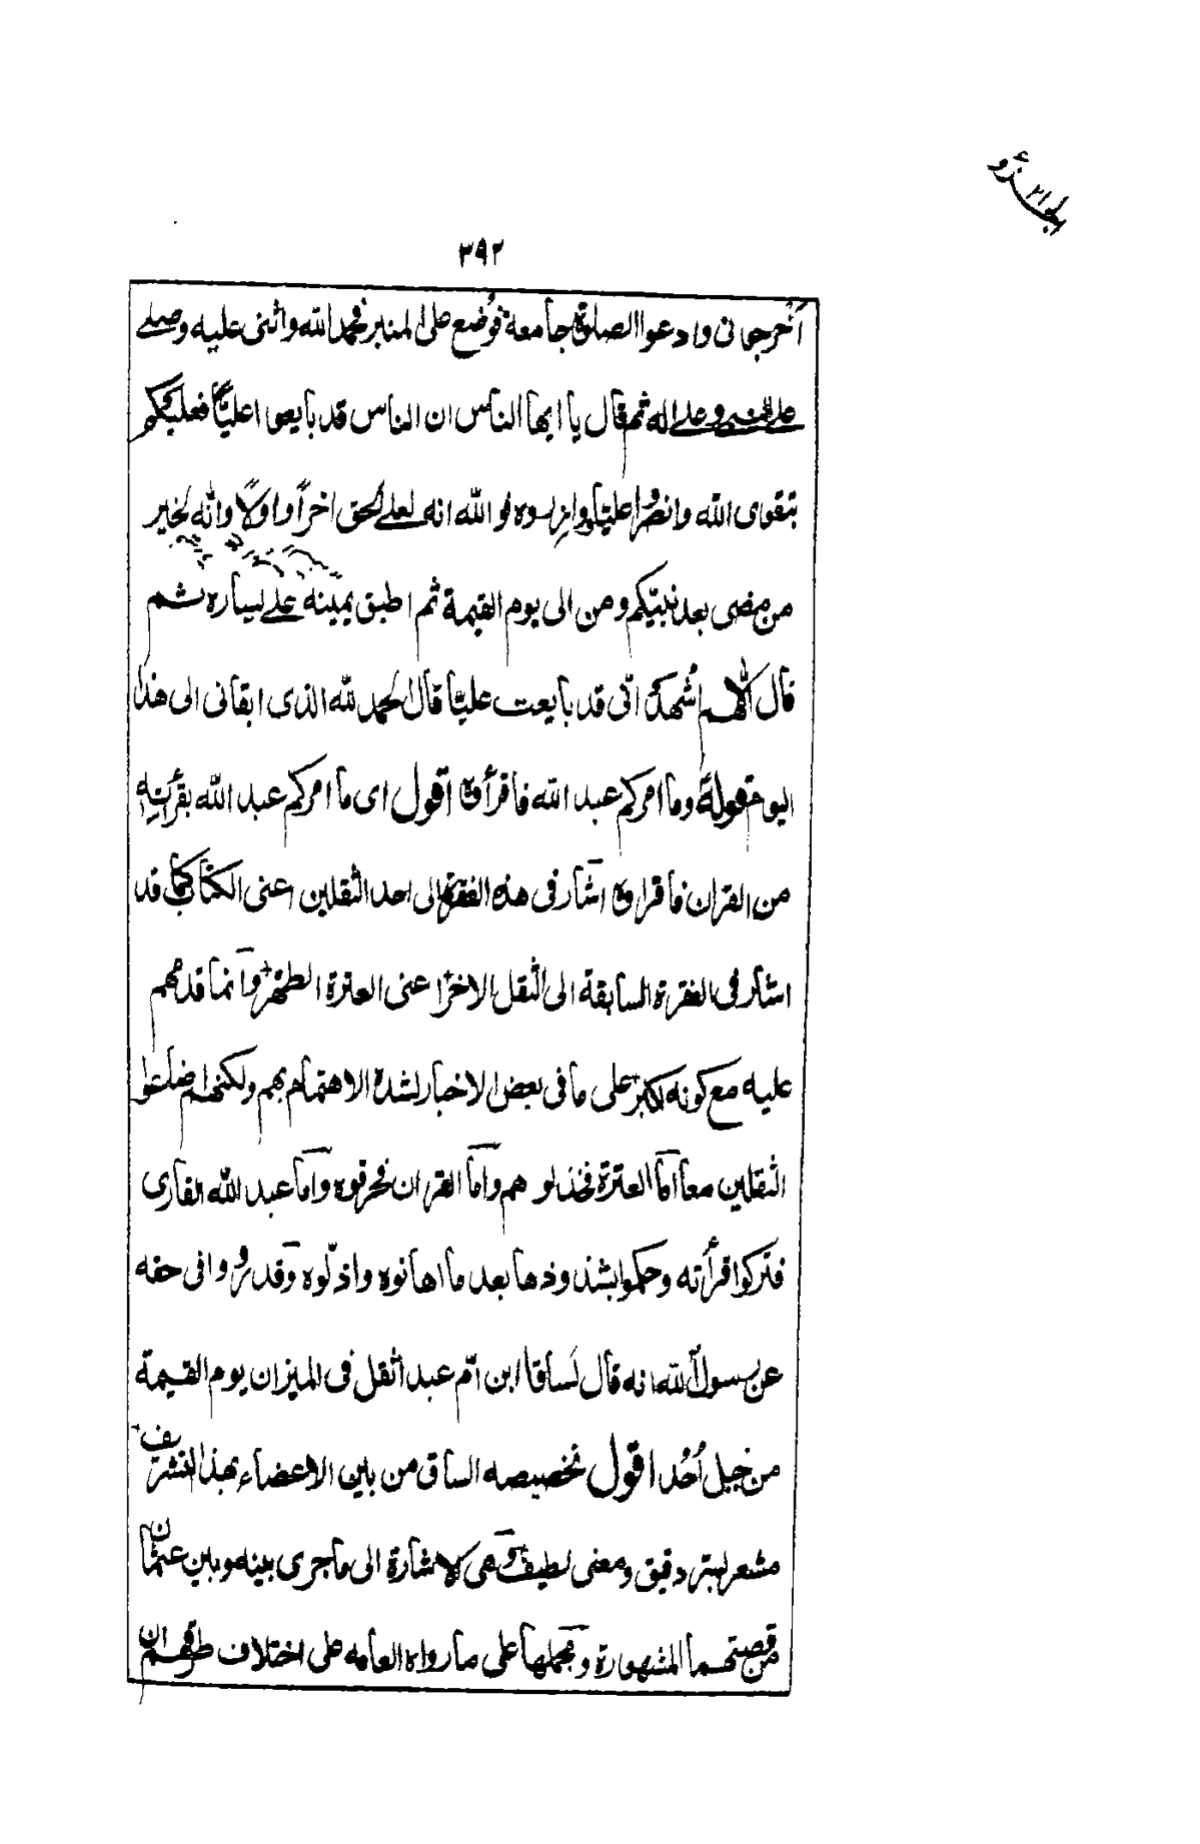 ٣٩٢
اخرجانى وادعوا الصلوة جامعة فوُضع على المنبر فحمد الله واثنى عليه وصلى
على النبى وعلى اله ثم قال يا ايها الناس ان الناس قد بايعوا عليّاً فعليكم
بتقوى الله وانصروا عليّا ووازروه فو الله انه لعلى الحق اخراً واولاً وانه لخير
من مضى بعد نبيّكم ومن الى يوم القيمة ثم اطبق يمينه على يساره ثم
قال اللهم اشهد انى قد بايعت عليّا قال الحمد لله الذى ابقانى الى هذا
اليوم قوله وما امركم عبد الله فاقرأوه اقول اى ما امركم عبد الله بقرأته
من القران فاقراوه اشار فى هذه الفقرة الى احد الثقلين اعنى الكتاب كما قد
اشار فى الفقرة السابقة الى الثقل الاخر اعنى العترة الطهر وانما قدمهم
عليه مع كونه اكبر على ما فى بعض الاخبار لشدة الاهتمام بهم ولكنهم ضلعوا
الثقلين معا اما العترة فخذلوهم واما القران فحرقوه واما عبد الله القارى
فتركوا قرأته وحكموا بشذوذها بعد ما اهانوه واذلّوه وقد رووا فى حقه
عن رسول الله انه قال لساقا ابن امّ عبد اثقل فى الميزان يوم القيمة
من جبل اُحُد اقول تخصيصه الساق من بين الاعضاء بهذا التشريف
مشعر لسر دقيق ومعنى لطيف وهى الاشارة الى ما جرى بينه وبين عثمان
من قصتهما المشهورة ومجملها على ما رواه العامه على اختلاف طرقهم ان